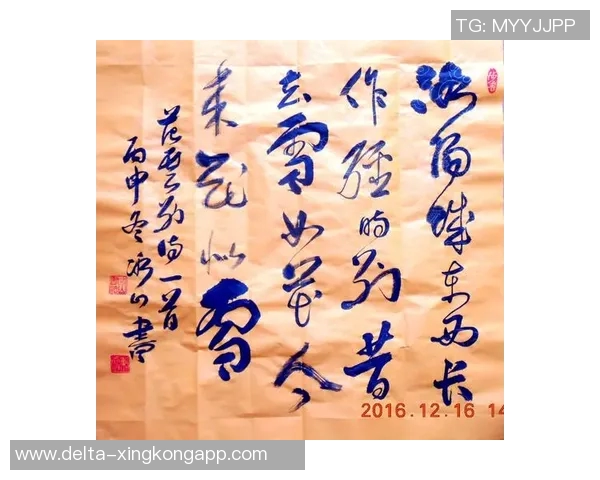 TG: MYYJJPP
洛阳城东西长
作经时别昔
去雪如花今
来花似雪
范云别诗一首
丙申冬 书
2016.12.16 14
www.delta-xingkongapp.com